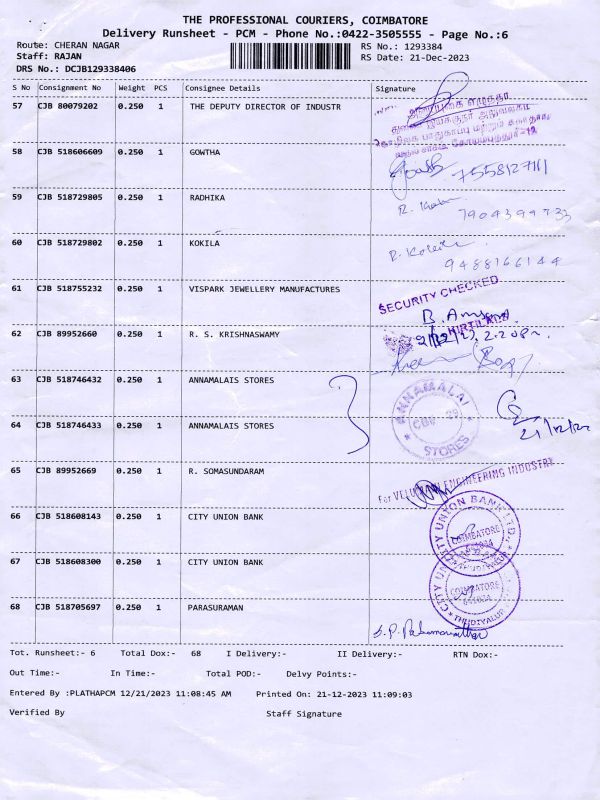 THE PROFESSIONAL COURIERS, COIMBATORE
Delivery Runsheet - PCM - Phone No.:0422-3505555 - Page No.:6
Route: CHERAN NAGAR
RS No.: 1293384
Staff: RAJAN
RS Date: 21-Dec-2023
DRS No.: DCJB129338406
S No Consignment No Weight PCS Consignee Details Signature
57 CJB 80079202 0.250 1 THE DEPUTY DIRECTOR OF INDUSTR
58 CJB 518606609 0.250 1 GOWTHA
7558127111
59 CJB 518729805 0.250 1 RADHIKA
60 CJB 518729802 0.250 1 KOKILA
R. Kokila
9488166144
61 CJB 518755232 0.250 1 VISPARK JEWELLERY MANUFACTURES
SECURITY CHECKED
KIRTILALS
62 CJB 89952660 0.250 1 R. S. KRISHNASWAMY
63 CJB 518746432 0.250 1 ANNAMALAIS STORES
ANNAMALAI
STORES
64 CJB 518746433 0.250 1 ANNAMALAIS STORES
21/12/23
65 CJB 89952669 0.250 1 R. SOMASUNDARAM
For ENGINEERING INDUSTRY
66 CJB 518608143 0.250 1 CITY UNION BANK
CITY UNION BANK LTD.
COIMBATORE
67 CJB 518608300 0.250 1 CITY UNION BANK
COIMBATORE
641034
THUDIYALUR
68 CJB 518705697 0.250 1 PARASURAMAN
Tot. Runsheet:- 6 Total Dox:- 68 I Delivery:- II Delivery:- RTN Dox:-
Out Time:- In Time:- Total POD:- Delvy Points:-
Entered By :PLATHAPCM 12/21/2023 11:08:45 AM Printed On: 21-12-2023 11:09:03
Verified By Staff Signature